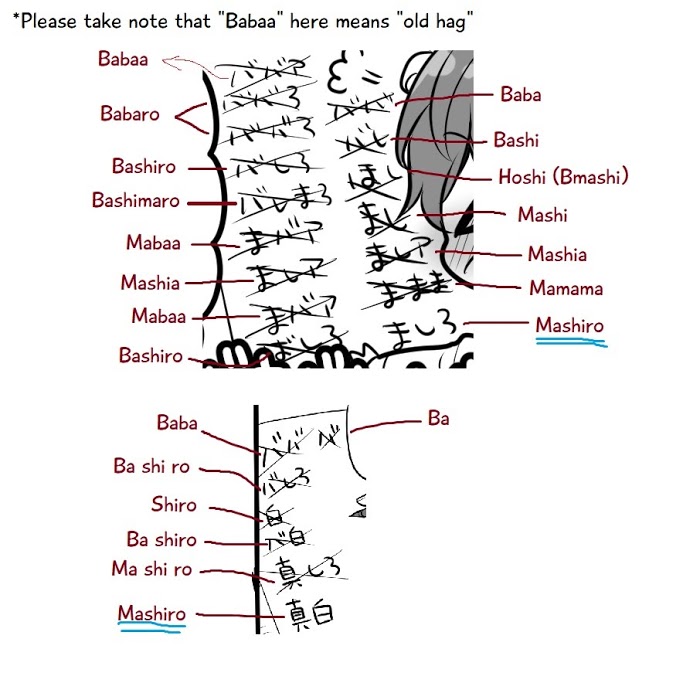 *Please take note that "Babaa" here means "old hag"
Babaa
Babaro
Bashiro
Bashimaro
Mabaa
Mashia
Mabaa
Bashiro
ババア
ババろ
ババろ
バしろ
バしまろ
まバア
ましア
まバア
ばしろ
ババ
バし
ほし
まし
ましア
ままま
ましろ
Baba
Bashi
Hoshi (Bmashi)
Mashi
Mashia
Mamama
Mashiro
Baba
Ba shi ro
Shiro
Ba shiro
Ma shi ro
Mashiro
ババ バ
バしろ
白
バ白
真しろ
真白
Ba